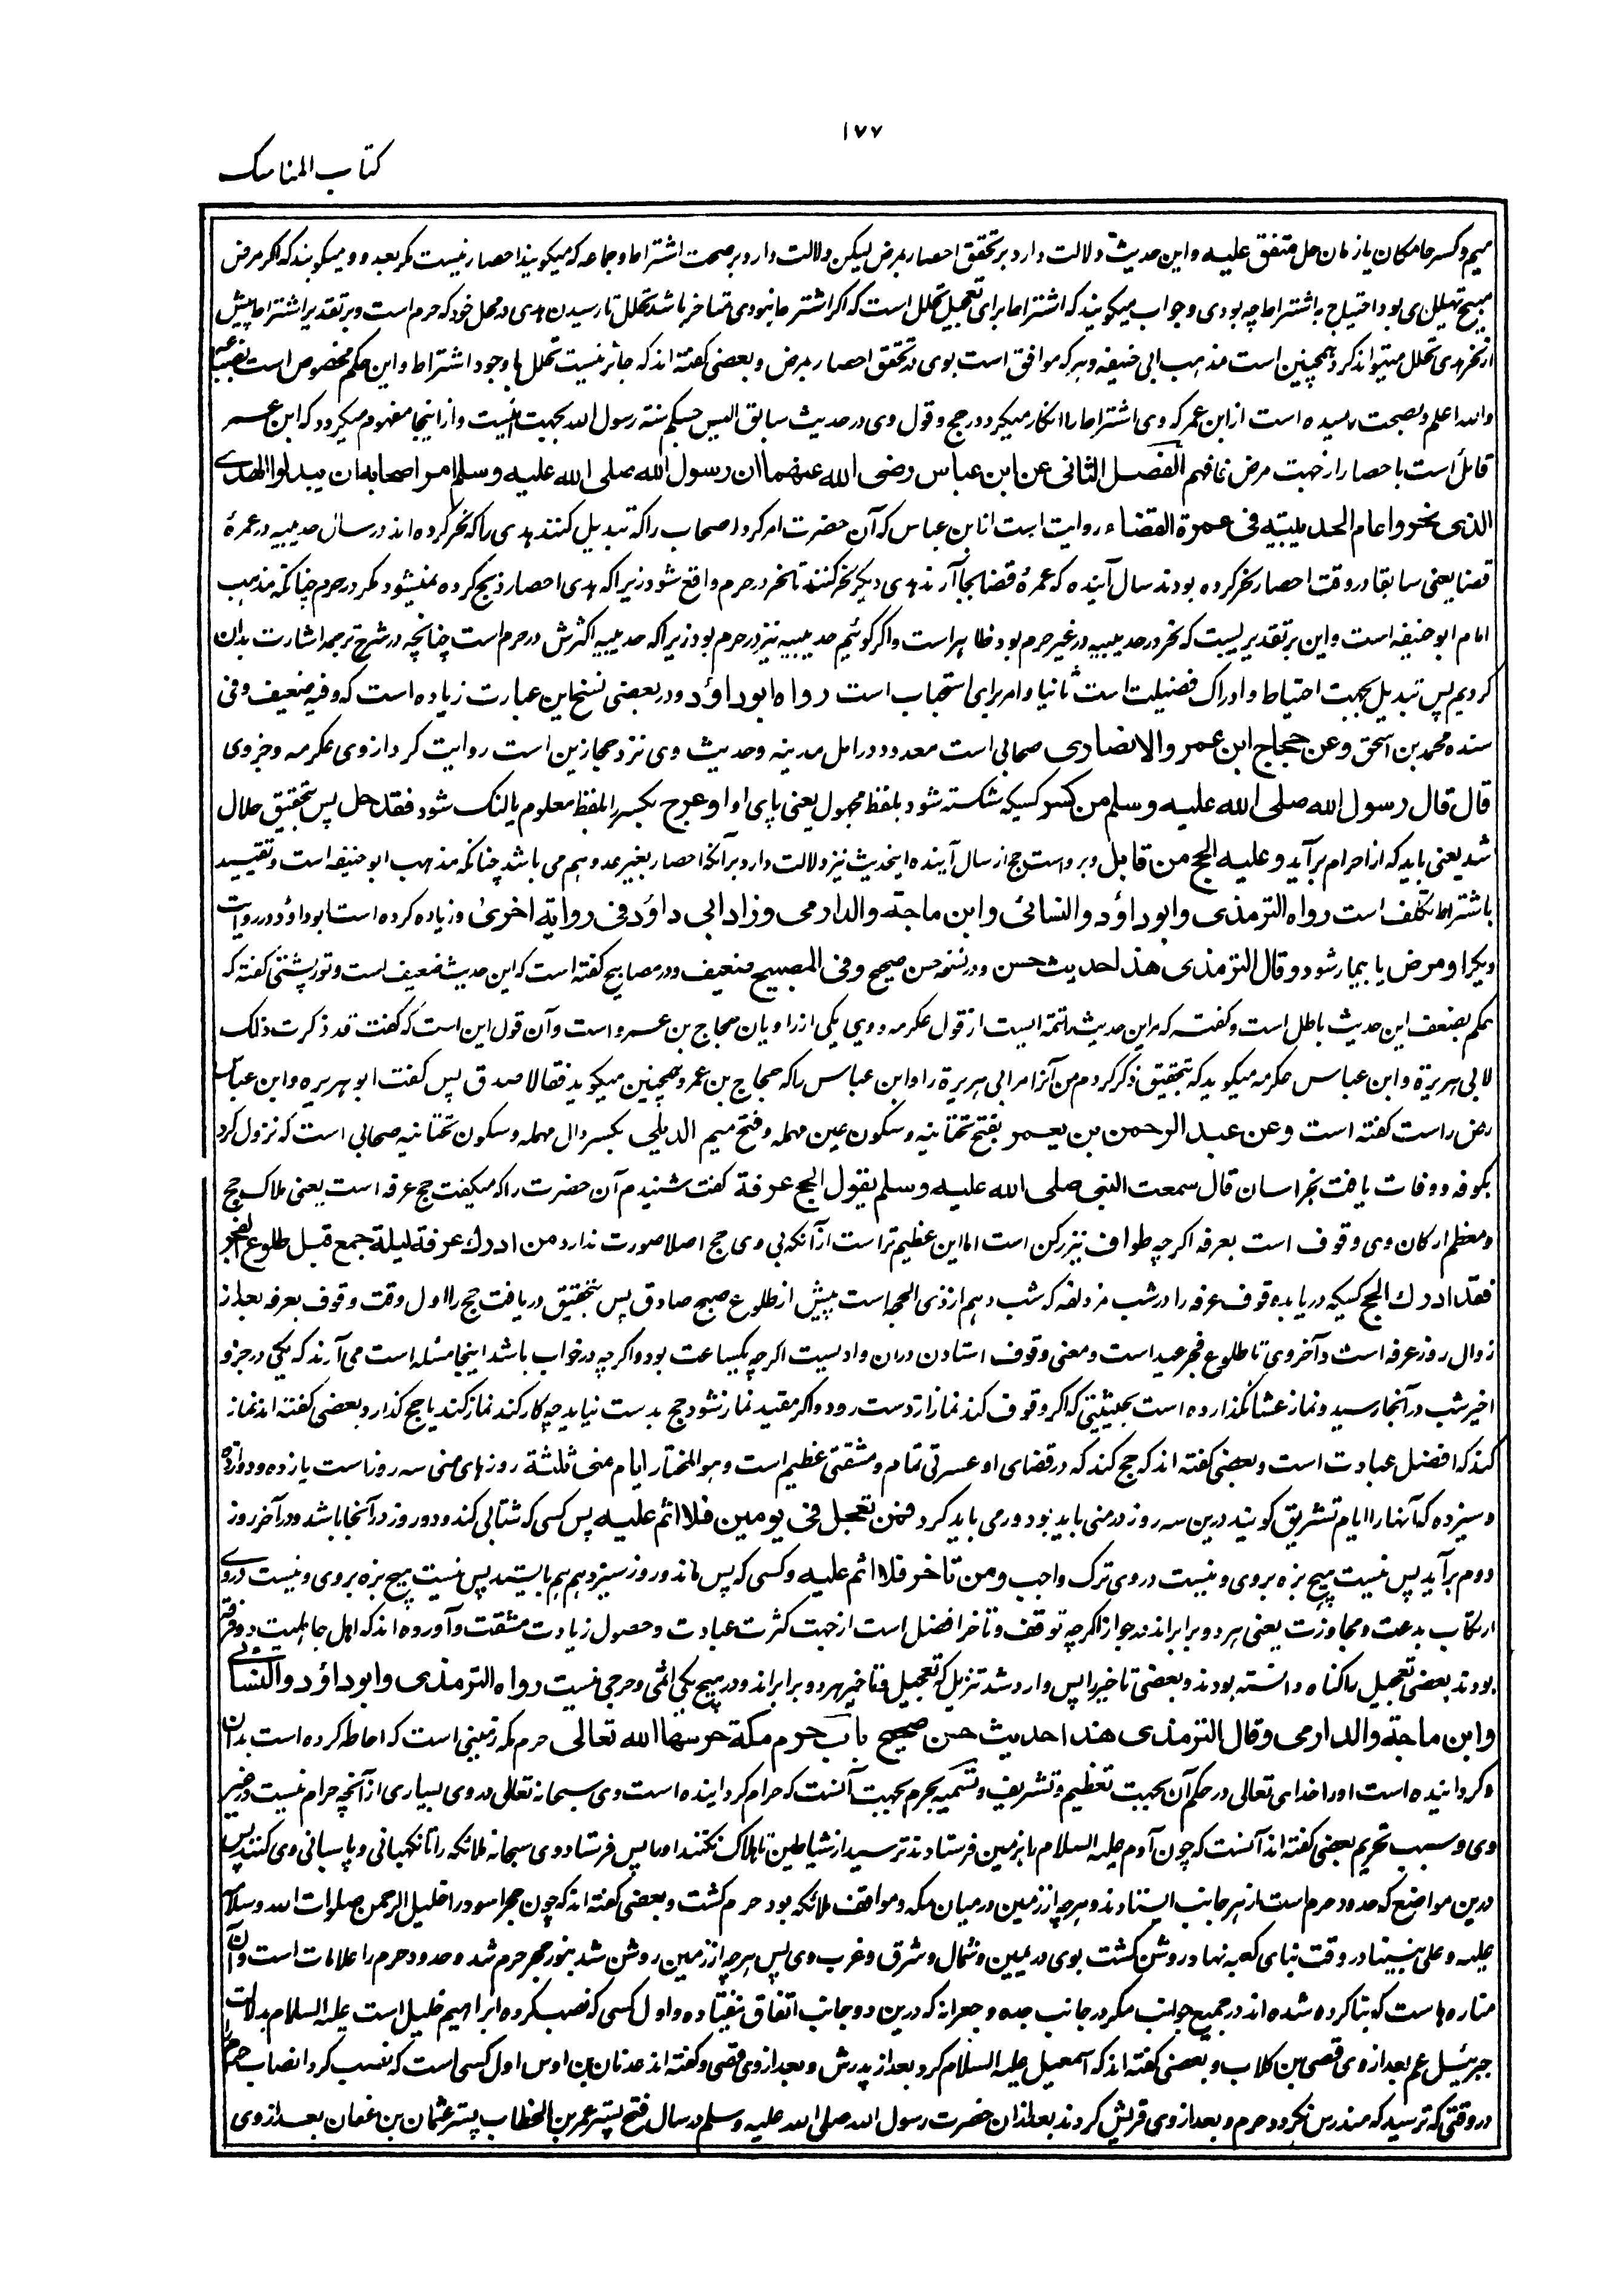 ۱۷۷
کتاب المناسک
میم و کسر حا مکان یا زمان حل متفق علیه و این حدیث دلالت دارد بر تحقق احصار بمرض لیکن دلالت دارد بر صحت اشتراط و جماعه که میگویند احصار نیست مگر بعدو و میگویند که اگر مرض
مبیح تحلل می بود احتیاج باشتراط چه بودی و جواب میگویند که اشتراط برای تعجیل تحلل است که اگر اشتراط نبودی متاخر باشد تحلل تا رسیدن هدی در محل خود که حرم است و بر تقدیر اشتراط پیش
از نحر هدی تحلل میتواند کرد و همچنین است مذهب ابی حنیفه و هر که موافق است بوی در تحقق احصار بمرض و بعضی گفته اند که جائز نیست تحلل با وجود اشتراط و این حکم مخصوص است بضباعه
والله اعلم و بصحت رسیده است از ابن عمر که وی اشتراط را انکار میکرد در حج و قول وی در حدیث سابق الیس حسبکم سنة رسول الله بجهت اینست و از اینجا مفهوم میگردد که ابن عمر
قائل است باحصار از جهت مرض فافهم الفصل الثانی عن ابن عباس رضی الله عنهما ان رسول الله صلی الله علیه وسلم امر اصحابه ان یبدلوا الهدی
الذی نحروا عام الحدیبیة فی عمرة القضاء روایت است از ابن عباس که آن حضرت امر کرد اصحاب را که تبدیل کنند هدی را که نحر کرده اند در سال حدیبیه در عمرهٔ
قضا یعنی سابقا در وقت احصار نحر کرده بودند سال آینده که عمرهٔ قضا بجا آرند هدی دیگر نحر کنند تا نحر در حرم واقع شود زیرا که هدی احصار ذبح کرده نمیشود مگر در حرم چنانکه مذهب
امام ابو حنیفه است و این بر تقدیریست که نحر در حدیبیه در غیر حرم بود ظاهر است و اگر گوئیم حدیبیه نیز در حرم بود زیرا که حدیبیه اکثرش در حرم است چنانچه در شرح ترجمه اشارت بدان
کردیم پس تبدیل بجهت احتیاط و ادراک فضیلت است ثانیا و امر برای استحباب است رواه ابوداؤد و در بعضی نسخ این عبارت زیاده است که و فیه ضعیف و فی
سنده محمد بن اسحق و عن حجاج ابن عمرو الانصاری صحابی است معدود در اهل مدینه و حدیث وی نزد حجازیین است روایت کرد از وی عکرمه و جز وی
قال قال رسول الله صلی الله علیه وسلم من کسر کسیکه شکسته شود بلفظ مجهول یعنی پای او او عرج بکسر را بلفظ معلوم یا لنگ شود فقد حل پس بتحقیق حلال
شد یعنی باید که از احرام برآید و علیه الحج من قابل و بر وست حج از سال آینده این حدیث نیز دلالت دارد بر آنکه احصار بغیر عدو هم می باشد چنانکه مذهب ابو حنیفه است و تقیید
باشتراط تکلف است رواه الترمذی وابوداؤد والنسائی وابن ماجة والدارمی وزاد ابی داؤد فی روایة اخری و زیاده کرده است ابوداؤد در روایت
دیگر او مرض یا بیمار شود وقال الترمذی هذا حدیث حسن و در نسخه حسن صحیح وفی المصابیح ضعیف و در مصابیح گفته است که این حدیث ضعیف است و تورپشتی گفته که
حکم بضعف این حدیث باطل است و گفته که مر این حدیث را تتمه ایست از قول عکرمه و وی یکی از راویان حجاج بن عمرو است و آن قول این است که گفت قد ذکرت ذلک
لابی هریرة و ابن عباس عکرمه میگوید که بتحقیق ذکر کردم من آنرا مر ابی هریرة را و ابن عباس را که حجاج بن عمرو همچنین میگوید فقالا صدق پس گفت ابو هریره و ابن عباس
رض راست گفته است و عن عبد الرحمن بن یعمر بفتح تحتانیه و سکون عین مهمله و فتح میم الدیلی بکسر دال مهمله و سکون تحتانیه صحابی است که نزول کرد
بکوفه و وفات یافت بخراسان قال سمعت النبی صلی الله علیه وسلم یقول الحج عرفة گفت شنیدم آن حضرت را که میگفت حج عرفه است یعنی ملاک حج
و معظم ارکان وی وقوف است بعرفه اگر چه طواف نیز رکن است اما این عظیم تر است از آنکه بی وی حج اصلا صورت ندارد من ادرک عرفة لیلة جمع قبل طلوع الفجر
فقد ادرک الحج کسیکه دریابد وقوف عرفه را در شب مزدلفه که شب دهم از ذی الحجه است پیش از طلوع صبح صادق پس بتحقیق دریافت حج را اول وقت وقوف بعرفه بعد از
زوال روز عرفه است و آخر وی تا طلوع فجر عید است و معنی وقوف استادن دران وادیست اگر چه یکساعت بود و اگر چه در خواب باشد اینجا مسئله است می آرند که یکی در جزو
اخیر شب در آنجا رسید و نماز عشا نگذارده است بحیثیتی که اگر وقوف کند نماز از دست رود و اگر مقید نماز شود حج بدست نیاید چه کار کند نماز کند یا حج گذارد بعضی گفته اند نماز
کند که افضل عبادت است و بعضی گفته اند که حج کند که در قضای او عسرتی تمام و مشقتی عظیم است و هو المختار ایام منی ثلثة روزهای منی سه روز است یازده و دوازده
و سیزده که آنها را ایام تشریق گویند درین سه روز در منی باید بود و رمی باید کرد فمن تعجل فی یومین فلا اثم علیه پس کسی که شتابی کند و دو روز در آنجا باشد و در آخر روز
دوم برآید پس نیست هیچ بزه بروی و نیست در وی ترک واجب ومن تاخر فلا اثم علیه و کسی که پس ماند و روز سیزدهم هم بایستد پس نیست هیچ بزه بروی و نیست در وی
ارتکاب بدعت و مجاوزت یعنی هر دو برابر اند در جواز اگر چه توقف و تاخر افضل است از جهت کثرت عبادت و حصول زیادت مشقت و آورده اند که اهل جاهلیت دو فرقه
بودند بعضی تعجیل را گناه دانسته بودند و بعضی تاخیر را پس وارد شد تنزیل که تعجیل و تاخیر هر دو برابر اند و در هیچ یکی اثمی و حرجی نیست رواه الترمذی وابوداؤد والنسائی
وابن ماجة والدارمی وقال الترمذی هذا حدیث حسن صحیح باب حرم مکة حرسها الله تعالی حرم مکه زمینی است که احاطه کرده است بدان
و گردانیده است او را خدای تعالی در حکم آن بجهت تعظیم و تشریف و تسمیه بحرم بجهت آنست که حرام گردانیده است وی سبحانه تعالی در وی بسیاری از آنچه حرام نیست در غیر
وی و سبب تحریم بعضی گفته اند آنست که چون آدم علیه السلام را بزمین فرستادند ترسید از شیاطین تا هلاک نکنند او را پس فرستاد وی سبحانه ملائکه را تا نگهبانی و پاسبانی وی کنند پس
درین مواضع که حدود حرم است از هر جانب ایستادند و هر چه از زمین در میان مکه و مواقف ملائکه بود حرم گشت و بعضی گفته اند که چون حجر اسود را خلیل الرحمن صلوات الله و سلامه
علیه و علی نبینا در وقت بنای کعبه نهاد روشن گشت بوی در یمین و شمال و شرق و غرب وی پس هر چه از زمین روشن شد بنور حجر حرم شد و حدود حرم را علامات است و آن
مناره هاست که بنا کرده شده اند در جمیع جوانب مگر در جانب جده و جعرانه که درین دو جانب اتفاق نیفتاده و اول کسی که نصب کرده ابراهیم خلیل است علیه السلام بدلالت
جبرئیل عم بعد از وی قصی بن کلاب و بعضی گفته اند که اسمعیل علیه السلام کرد بعد از پدرش و بعد از وی قصی و گفته اند عدنان بن اوس اول کسی است که نصب کرد انصاب حرم
در وقتی که ترسید که مندرس نگردد حرم و بعد از وی قریش کردند بعد ازان حضرت رسول الله صلی الله علیه وسلم در سال فتح پستر عمر بن الخطاب پستر عثمان بن عفان بعد از وی